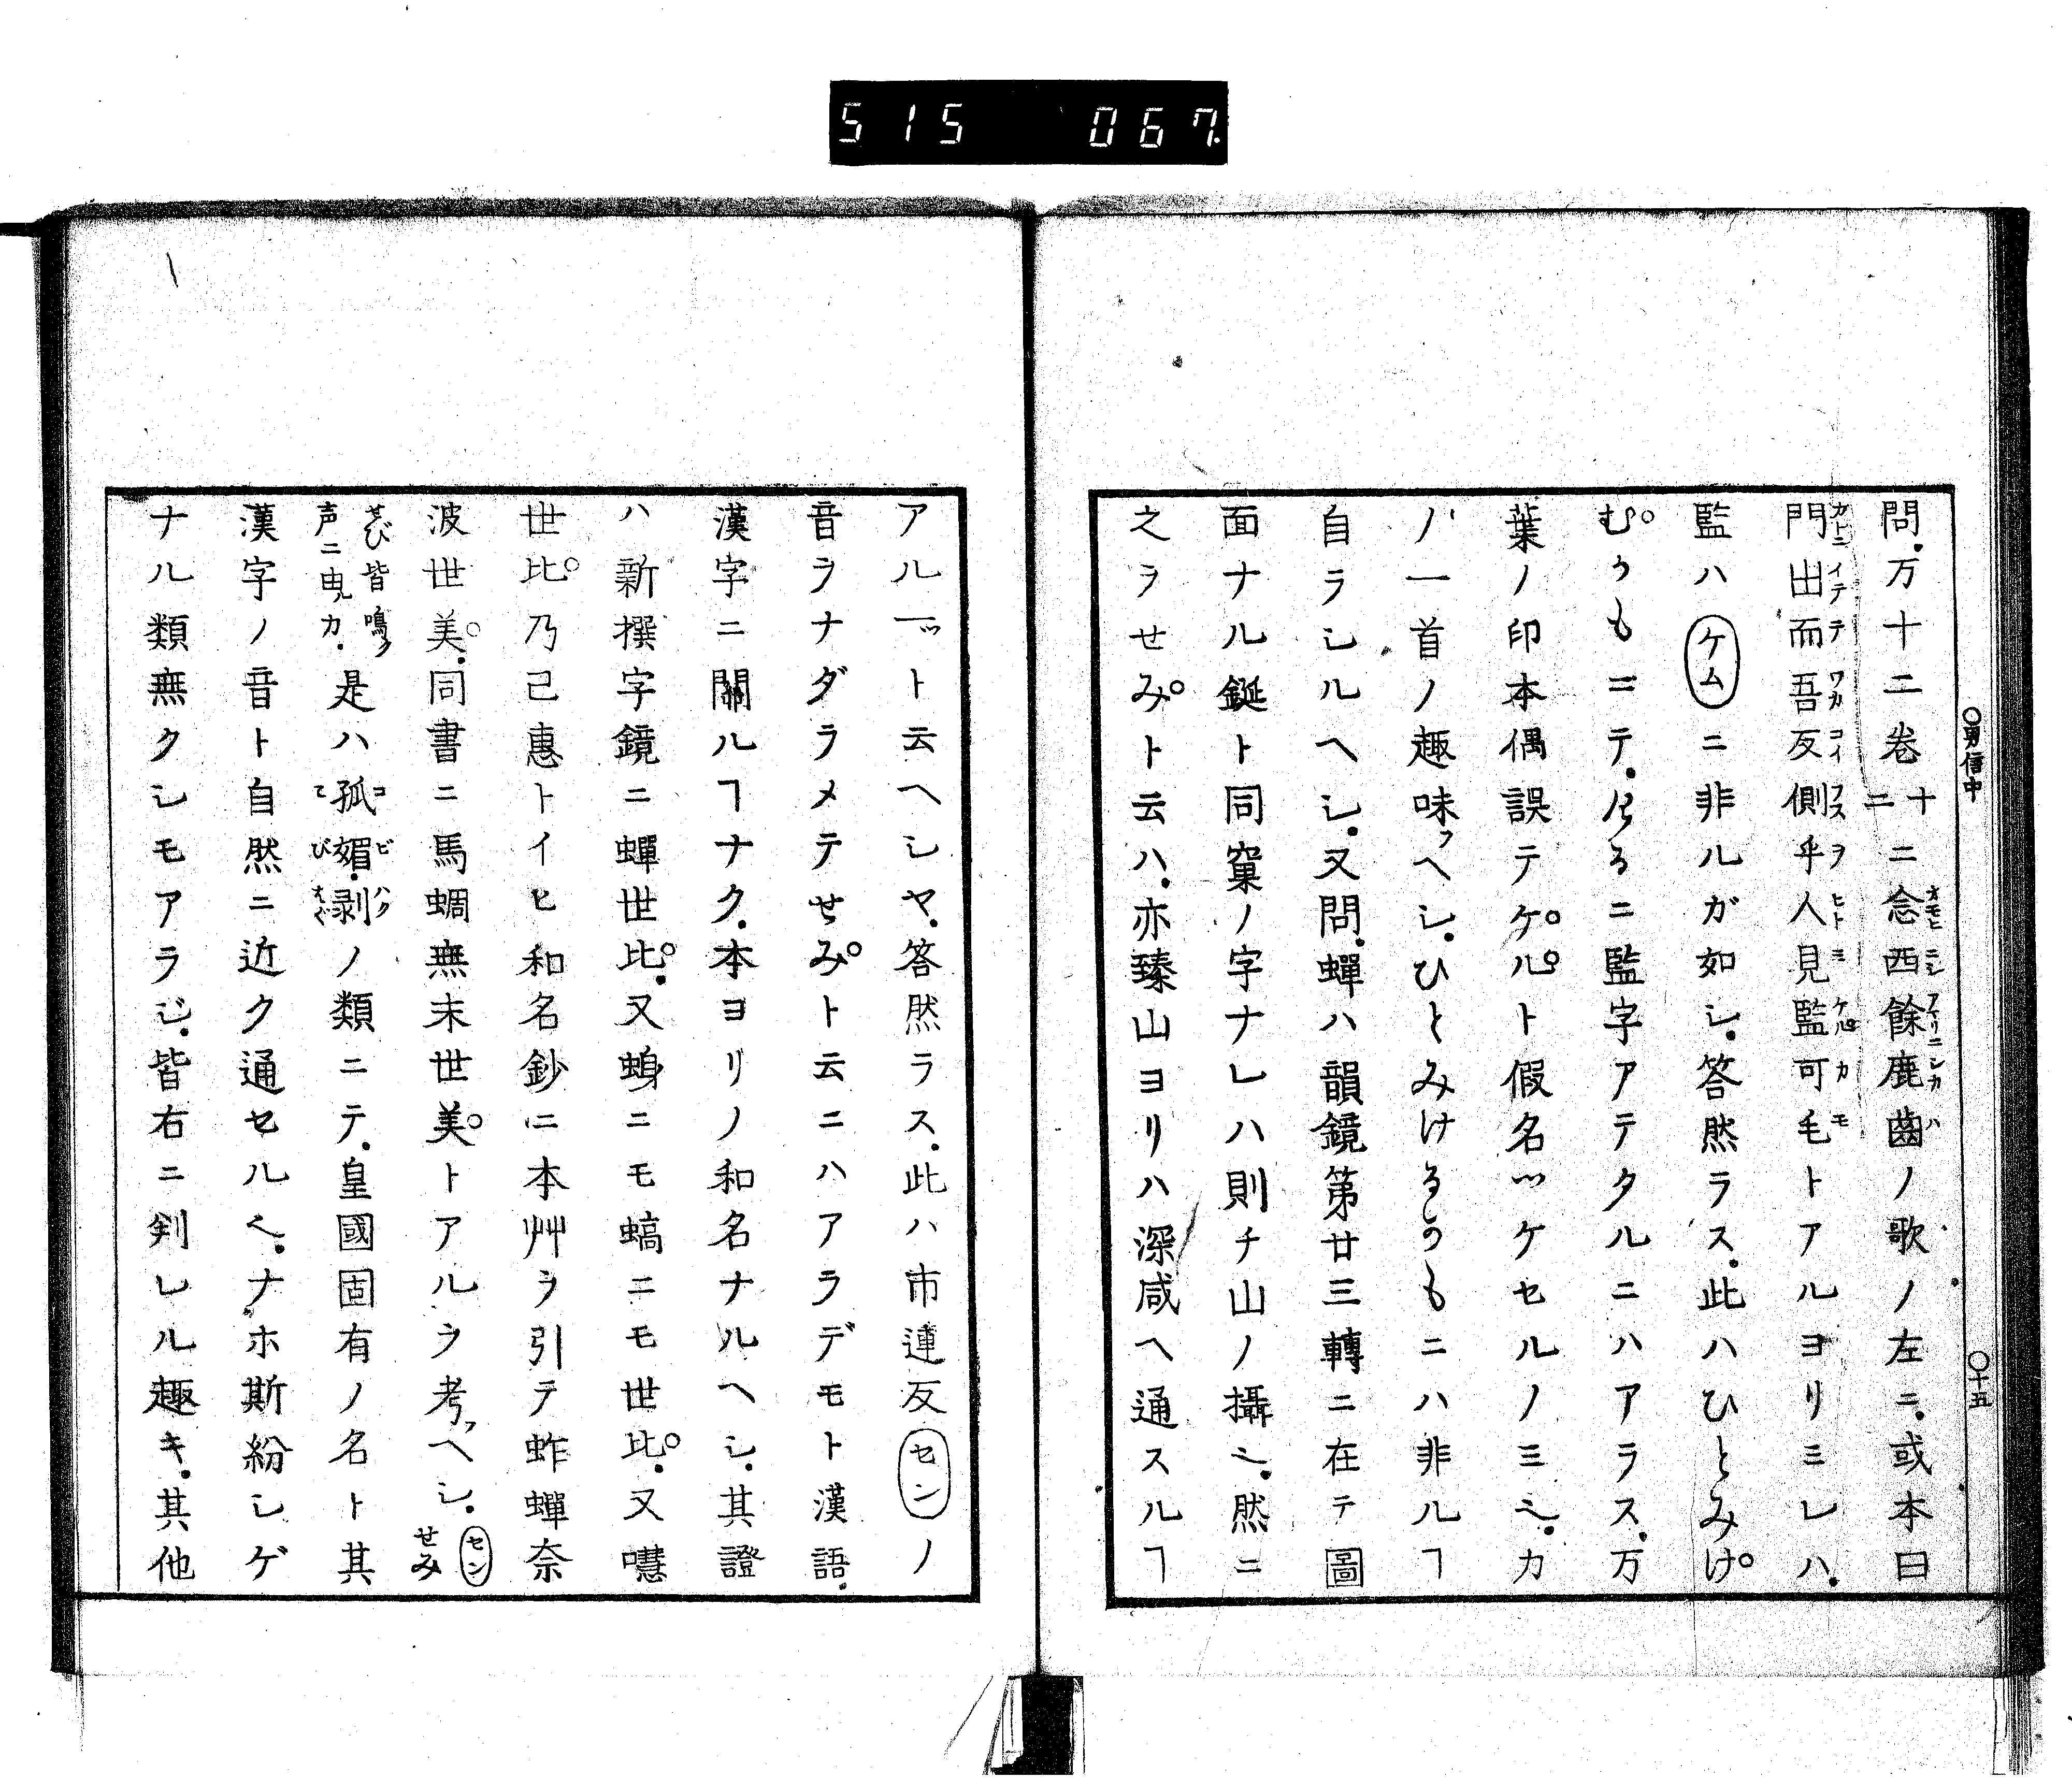 515 067.
○男信中 ○十五
問.万十二巻 十二 ニ念西餘鹿齒ノ歌ノ左ニ.或本曰
門出而吾反側乎人見監可毛トアルヨリミレハ.
監ハケムニ非ルガ如シ.答然ラス.此ハひとみけ
むかもニテ.けるニ監字アテタルニハアラス.万
葉ノ印本偶誤テケルト假名ツケセルノミ也.カ
ノ一首ノ趣味フヘシ.ひとみけるかもニハ非ルヿ
自ラシルヘシ.又問.蟬ハ韻鏡第廿三轉ニ在テ圖
面ナル鋋ト同窠ノ字ナレハ則チ山ノ攝也.然ニ
之ヲせみト云ハ.亦臻山ヨリハ深咸ヘ通スルヿ
アルヿト云ヘシヤ.答然ラス.此ハ市連反センノ
音ヲナダラメテせみト云ニハアラデモト漢語.
漢字ニ關ルヿナク.本ヨリノ和名ナルヘシ.其證
ハ新撰字鏡ニ蟬世比.又蝒ニモ蜩ニモ世比.又嘒
世比乃己惠トイヒ和名鈔ニ本艸ヲ引テ蚱蟬奈
波世美.同書ニ馬蜩無末世美トアルヲ考フヘシ.センせみ
せび皆鳴ク声ニ由ルカ.是ハ孤媚.剥ノ類ニテ.皇國固有ノ名ト其
漢字ノ音ト自然ニ近ク通セル也.ナホ斯紛シゲ
ナル類無クシモアラジ.皆右ニ判レル趣キ.其他